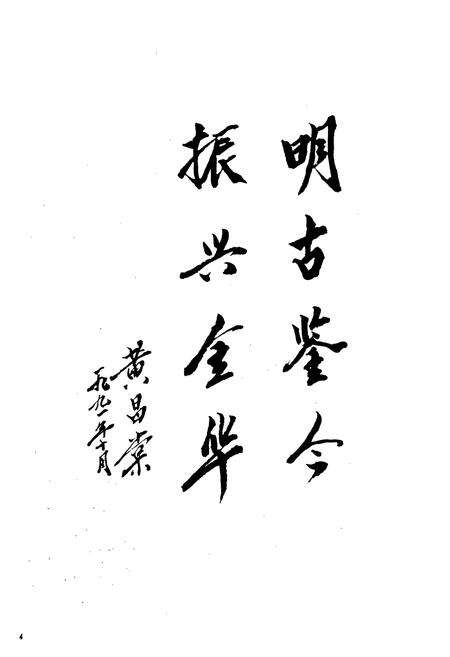 明古鉴今
振兴金华
黄昌棠
一九九一年十月
4